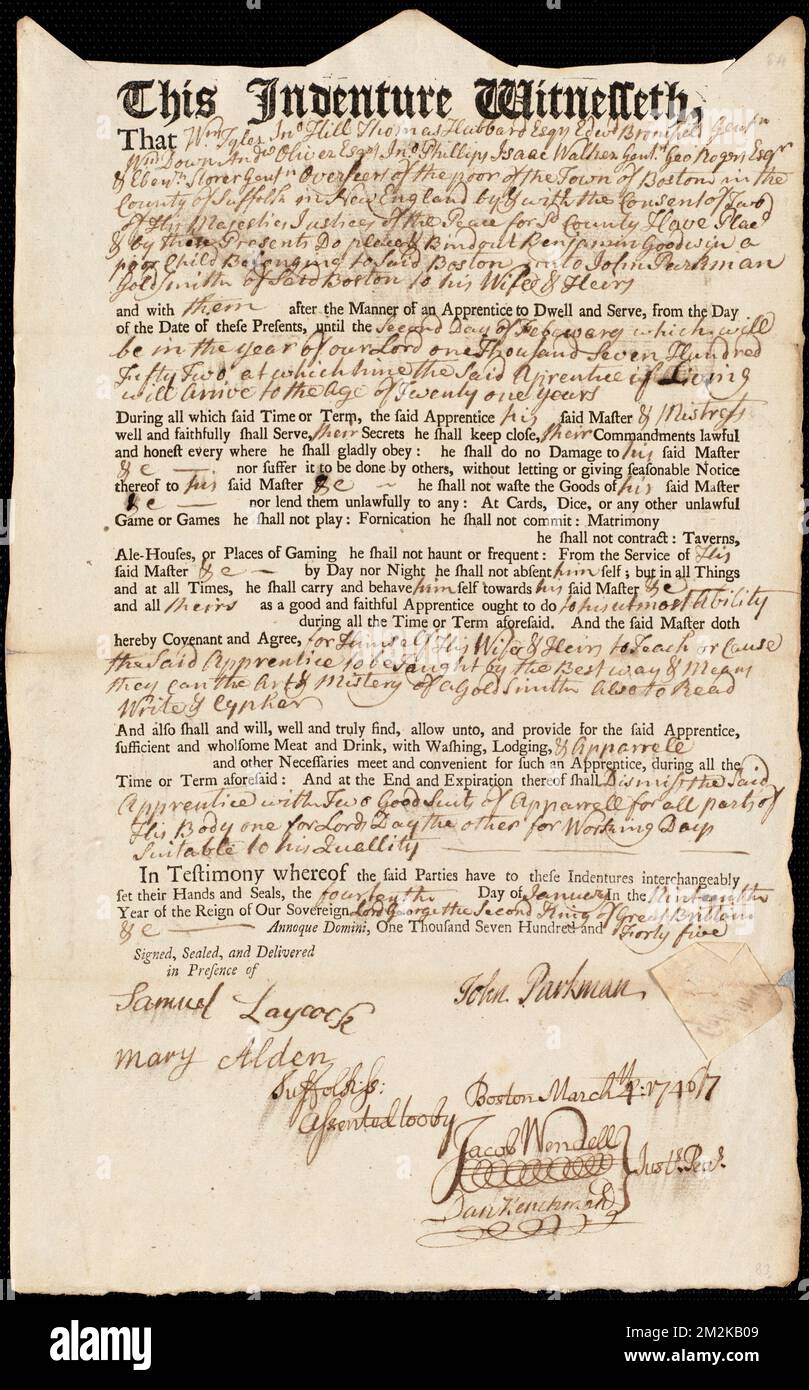 84
This Indenture Witnesseth,
That Wm Tyler Jno Hill Thomas Hubbard Esqr Edwd Bromfield Gentn
Wm Down Andw Oliver Esqr Jno Phillips Isaac Walker Gentn Geo Rogers Esqr
& Ebenr Storer Gentn Overseers of the poor of the Town of Boston in the
County of Suffolk in New England by & with the Consent of Two
of His Majesties Justices of the Peace for Sd County Have Placd
& by these Presents Do place & Bind out Benjamin Goodwin a
poor Child Belonging to Said Boston unto John Parkman
Goldsmith of Said Boston to his Wife & Heirs
and with them after the Manner of an Apprentice to Dwell and Serve, from the Day
of the Date of theſe Preſents, until the Second Day of Febuwary which will
be in the year of our Lord one Thousand Seven Hundred
Fifty Two at which time the Said Aprentice if Living
will arrive to the Age of Twenty one years
During all which ſaid Time or Term, the ſaid Apprentice his ſaid Maſter & Mistress
well and faithfully ſhall Serve, their Secrets he ſhall keep cloſe, their Commandments lawful
and honeſt every where he ſhall gladly obey: he ſhall do no Damage to his ſaid Maſter
& c — nor ſuffer it to be done by others, without letting or giving ſeaſonable Notice
thereof to his ſaid Maſter & c ~ he ſhall not waſte the Goods of his ſaid Maſter
& c — nor lend them unlawfully to any: At Cards, Dice, or any other unlawful
Game or Games he ſhall not play: Fornication he ſhall not commit: Matrimony
he ſhall not contract: Taverns,
Ale-Houſes, or Places of Gaming he ſhall not haunt or frequent: From the Service of His
ſaid Maſter & c — by Day nor Night he ſhall not abſent him ſelf; but in all Things
and at all Times, he ſhall carry and behave him ſelf towards his ſaid Maſter & c
and all theirs as a good and faithful Apprentice ought to do to his utmost Ability
during all the Time or Term aforeſaid. And the ſaid Maſter doth
hereby Covenant and Agree, for Himself His Wife & Heirs to Teach or Cause
the Said Apprentice to be Taught by the Best way & Means
they can the Art & Mistery of a Gold Smith Also to Read
Write & Cypher
And alſo ſhall and will, well and truly find, allow unto, and provide for the ſaid Apprentice,
ſufficient and wholſome Meat and Drink, with Waſhing, Lodging, & Apparrell
and other Neceſſaries meet and convenient for ſuch an Apprentice, during all the
Time or Term aforeſaid: And at the End and Expiration thereof ſhall Dismiss the Said
Apprentice with Two Good Suits of Apparrell for all parts of
His Body one for Lords Day the other for Working Days
Suitable to his Quallity —
In Teſtimony whereof the ſaid Parties have to theſe Indentures interchangeably
ſet their Hands and Seals, the fourteenth Day of January In the Ninteenth
Year of the Reign of Our Sovereign Lord George the Second King of Great Brittain
& c — Annoque Domini, One Thouſand Seven Hundred and Forty five
Signed, Sealed, and Delivered
in Preſence of
Samuel Laycock
John Parkman
mary Alden
Suffolk ss:
Boston March 4th: 1746/7
Assented too by
Jacob Wendell
Dan Henchman
Justs. Peas.
83
alamy
Image ID: 2M2KB09
www.alamy.com